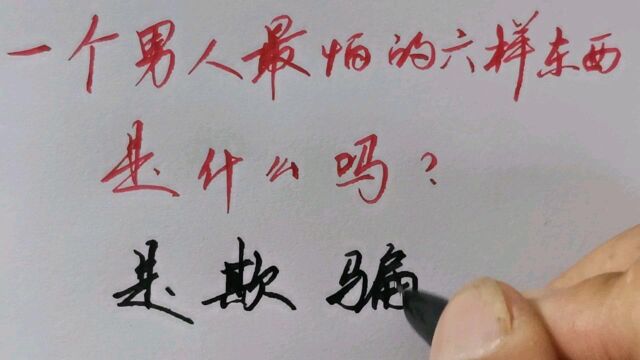 一个男人最怕的六样东西
是什么吗?
是欺骗